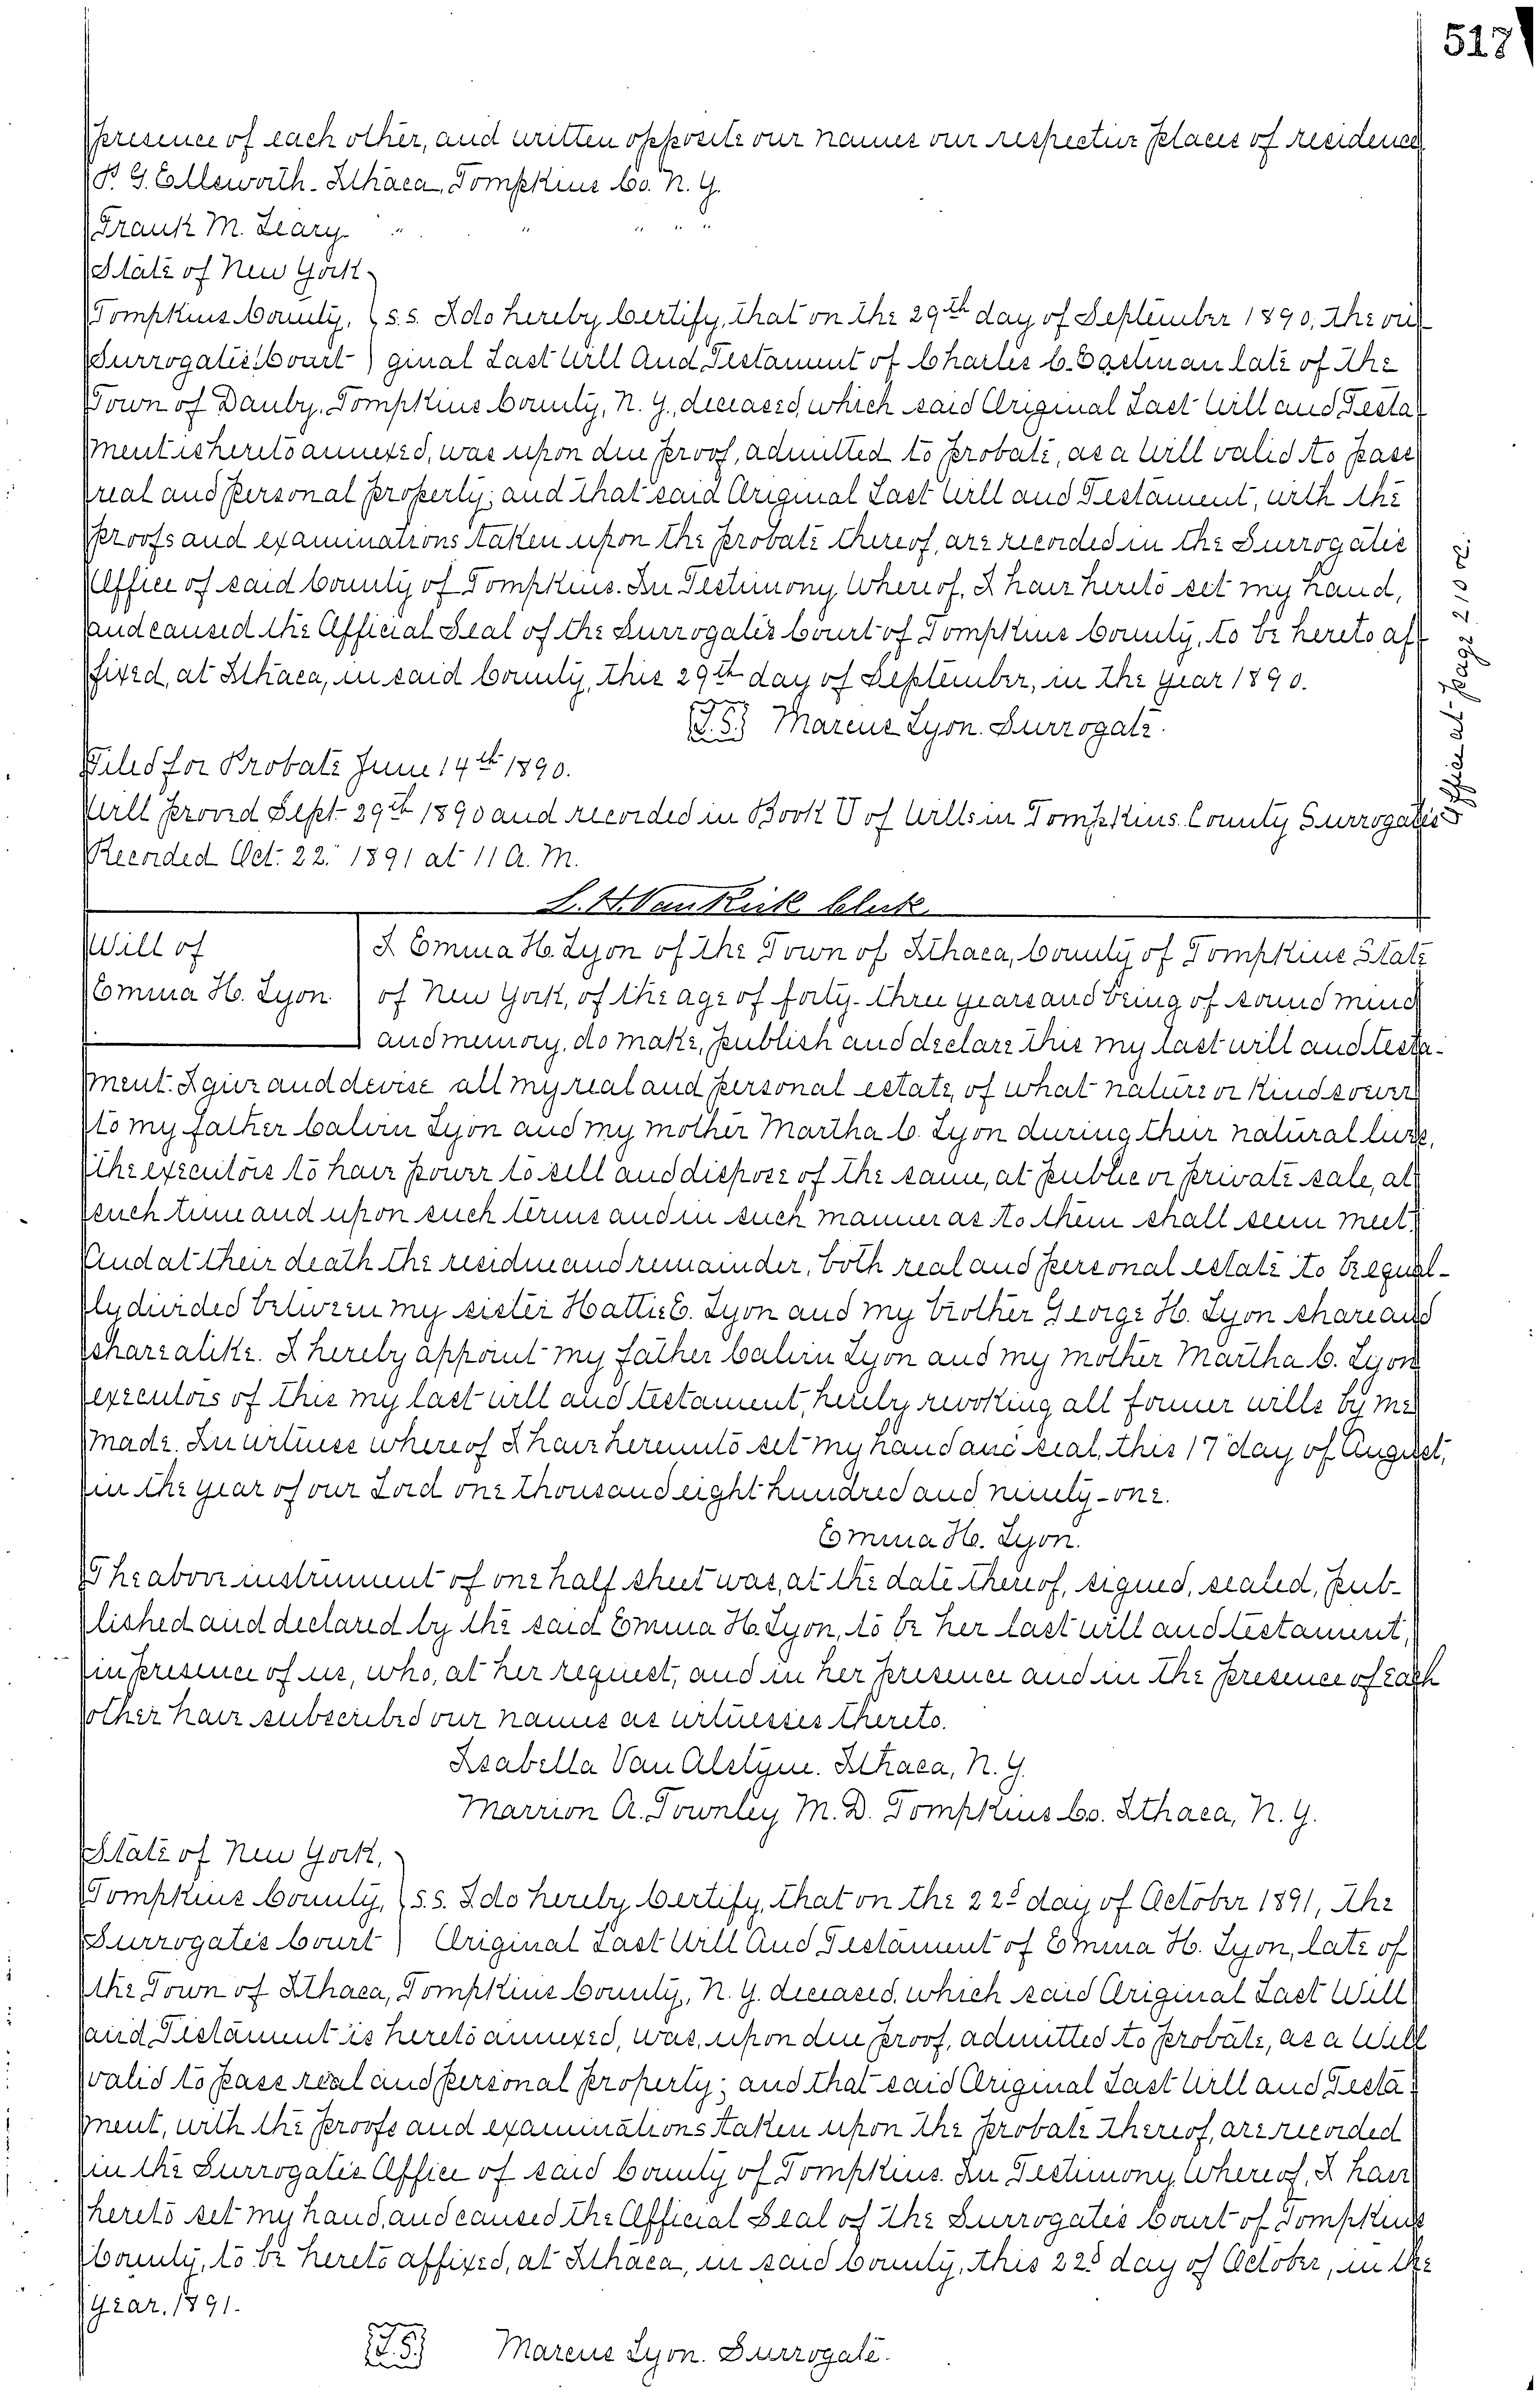 517
presence of each other, and written opposite our names our respective places of residence
P. G. Ellsworth. Ithaca, Tompkins Co. N. Y.
Frank M. Leary " " " " "
State of New York
Tompkins County, s.s. I do hereby Certify, that on the 29th day of September 1890, the ori-
Surrogates Court ginal Last Will And Testament of Charles C. Eastman late of the
Town of Danby, Tompkins County, N. Y., deceased, which said Original Last Will and Testa-
ment is hereto annexed, was upon due proof, admitted to probate, as a Will valid to pass
real and personal property; and that said Original Last Will and Testament, with the
proofs and examinations taken upon the probate thereof, are recorded in the Surrogates
Office of said County of Tompkins. In Testimony Whereof, I have hereto set my hand,
and caused the Official Seal of the Surrogates Court of Tompkins County, to be hereto af-
fixed, at Ithaca, in said County, this 29th day of September, in the year 1890.
L.S. Marcus Lyon. Surrogate.
Filed for Probate June 14th 1890.
Will proved Sept 29th 1890 and recorded in Book U of Wills in Tompkins County Surrogates
Office at page 210 &c.
Recorded Oct. 22. 1891 at 11 A. M.
L. H. VanKirk Clerk.
Will of
Emma H. Lyon
I Emma H. Lyon of the Town of Ithaca, County of Tompkins State
of New York, of the age of forty-three years and being of sound mind
and memory, do make, publish and declare this my last will and testa-
ment. I give and devise all my real and personal estate, of what nature or kind soever
to my father Calvin Lyon and my mother Martha C. Lyon during their natural lives,
the executors to have power to sell and dispose of the same, at public or private sale, at
such time and upon such terms and in such manner as to them shall seem meet.
And at their death the residue and remainder, both real and personal estate to be equal-
ly divided between my sister Hattie E. Lyon and my brother George H. Lyon share and
share alike. I hereby appoint my father Calvin Lyon and my mother Martha C. Lyon
executors of this my last will and testament, hereby revoking all former wills by me
made. In witness whereof I have hereunto set my hand and seal, this 17 day of August,
in the year of our Lord one thousand eight hundred and ninety-one.
Emma H. Lyon.
The above instrument of one half sheet was, at the date thereof, signed, sealed, pub-
lished and declared by the said Emma H. Lyon, to be her last will and testament,
in presence of us, who, at her request, and in her presence and in the presence of each
other have subscribed our names as witnesses thereto.
Isabella Van Alstyne. Ithaca, N. Y.
Marrion A. Townley M. D. Tompkins Co. Ithaca, N. Y.
State of New York,
Tompkins County, s.s. I do hereby Certify, that on the 22d day of October 1891, the
Surrogates Court Original Last Will And Testament of Emma H. Lyon, late of
the Town of Ithaca, Tompkins County, N. Y. deceased, which said Original Last Will
and Testament is hereto annexed, was, upon due proof, admitted to probate, as a Will
valid to pass real and personal property; and that said Original Last Will and Testa-
ment, with the proofs and examinations taken upon the probate thereof, are recorded
in the Surrogates Office of said County of Tompkins. In Testimony Whereof, I have
hereto set my hand, and caused the Official Seal of the Surrogates Court of Tompkins
County, to be hereto affixed, at Ithaca, in said County, this 22d day of October, in the
year, 1891.
L.S. Marcus Lyon. Surrogate.